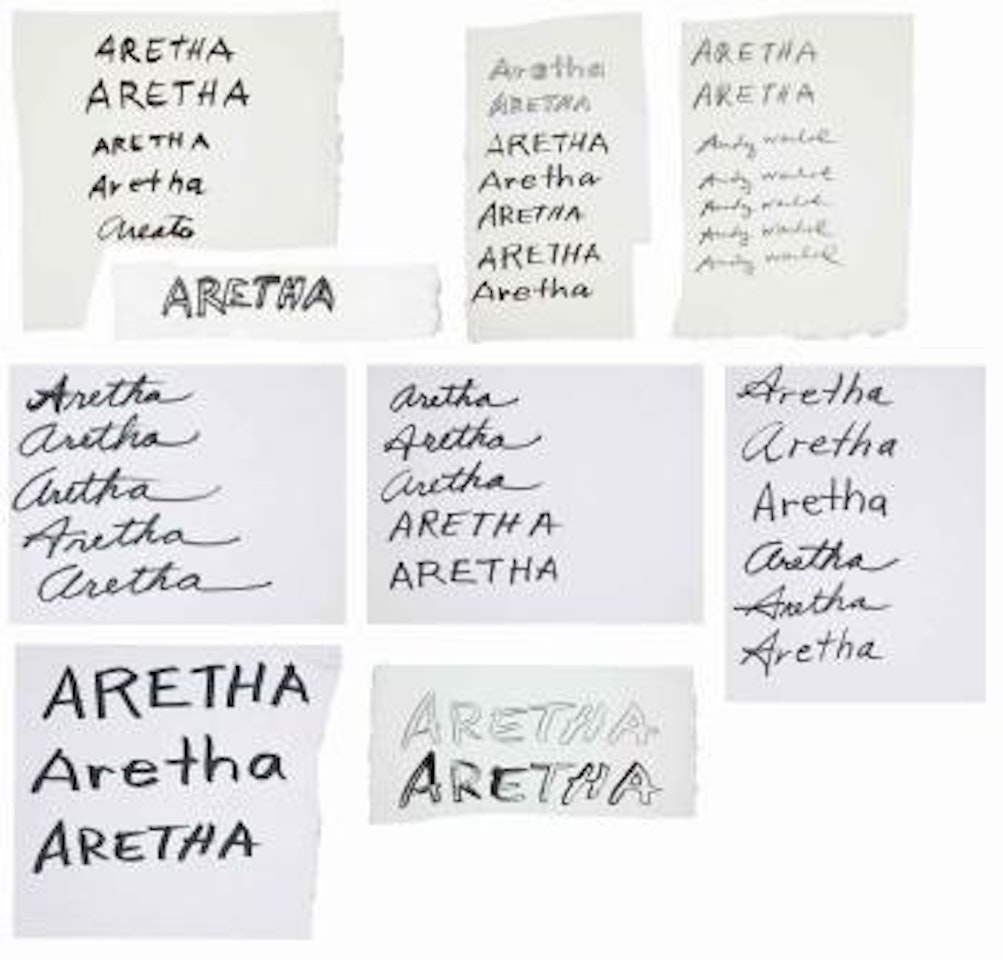 ARETHA
ARETHA
ARETHA
Aretha
Areata
ARETHA
Aretha
ARETHA
ARETHA
Aretha
ARETHA
ARETHA
Aretha
ARETHA
ARETHA
Andy Warhol
Andy Warhol
Andy Warhol
Andy Warhol
Andy Warhol
Aretha
Aretha
Aretha
Aretha
Aretha
Aretha
Aretha
Aretha
ARETHA
ARETHA
Aretha
Aretha
Aretha
Aretha
Aretha
Aretha
ARETHA
Aretha
ARETHA
ARETHA
ARETHA